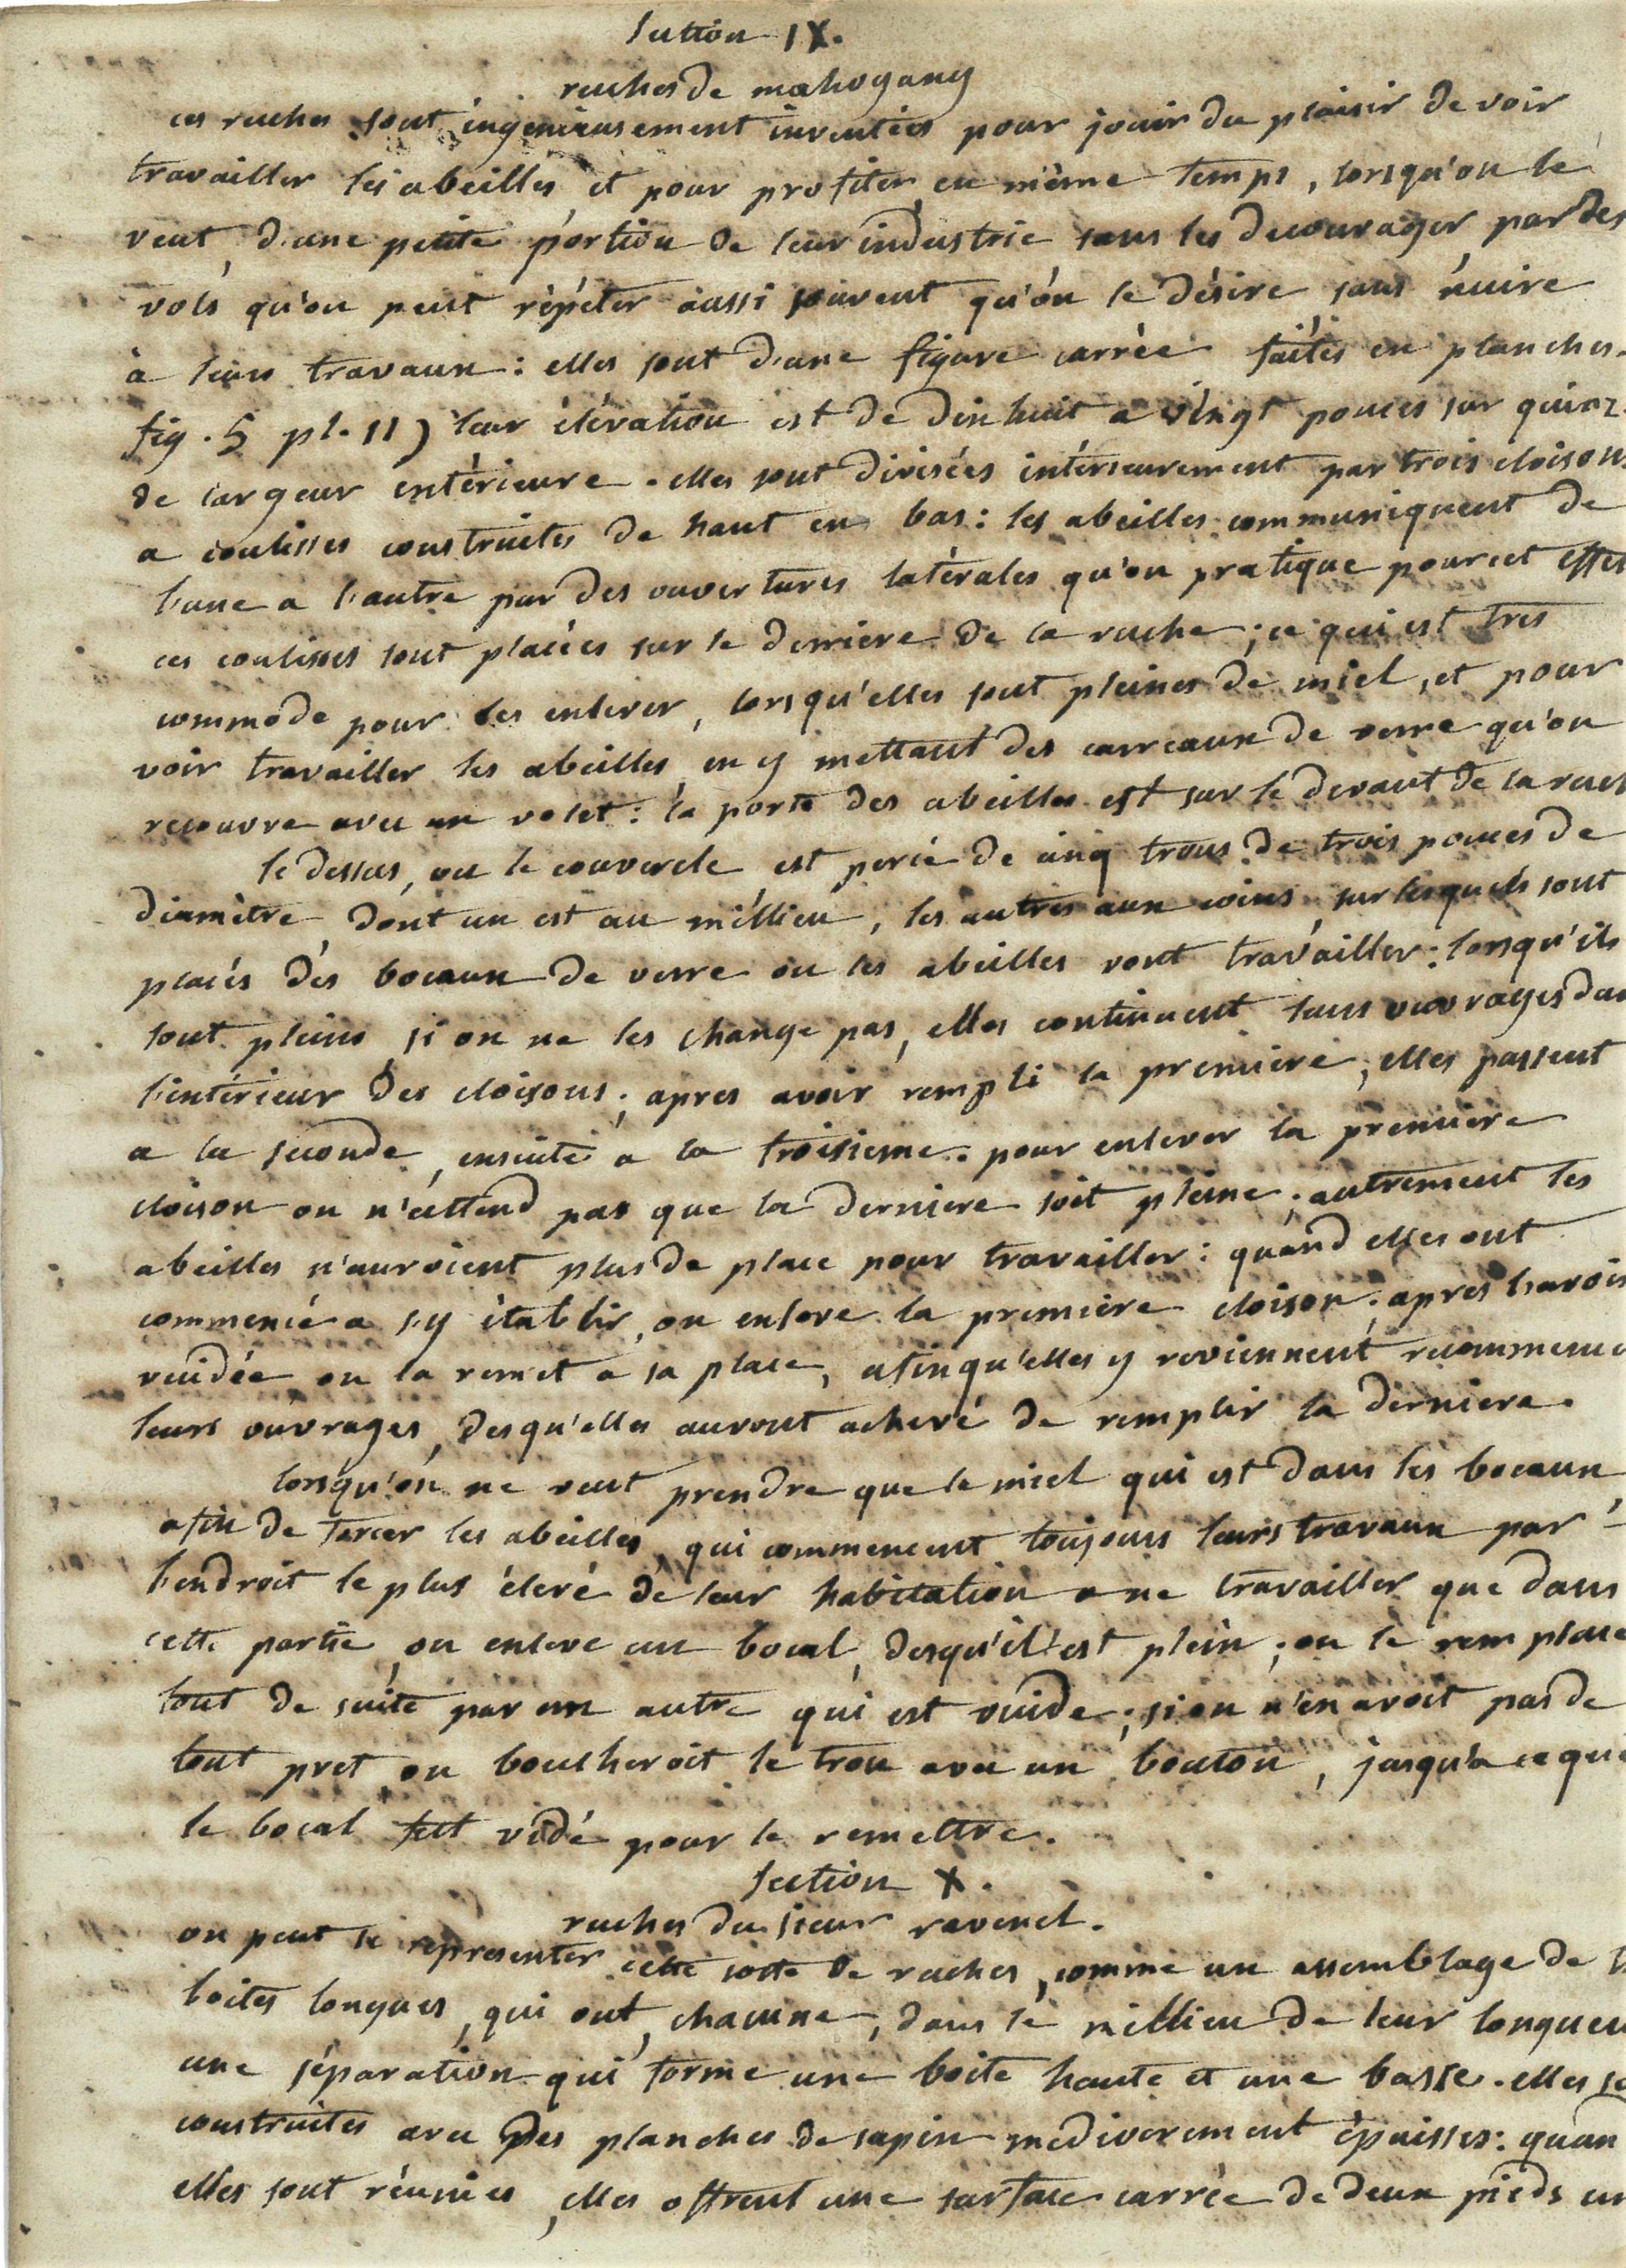 section IX.
ruches de mahogany
ces ruches sont ingenieusement inventées pour jouir du plaisir de voir
travailler les abeilles et pour profiter en même temps, lorsqu'on le
veut, d'une petite portion de leur industrie sans les decourager par des
vols qu'on peut répéter aussi souvent qu'on le désire sans nuire
à leurs travaux : elles sont d'une figure carrée faites en planches.
fig. 5 pl. 11) leur élévation est de dix huit a vingt pouces sur quinz
de largeur extérieure. elles sont divisées intérieurement par trois cloisons
a coulisses construites de haut en bas : les abeilles communiquent de
l'une a l'autre par des ouvertures latérales qu'on pratique pour cet effet
ces coulisses sont placées sur le derriere de la ruche ; ce qui est tres
commode pour les enlever, lorsqu'elles sont pleines de miel, et pour
voir travailler les abeilles en y mettant des carreaux de verre qu'on
recouvre avec un volet : la porte des abeilles est sur le devant de la ruch
le dessus, ou le couvercle est percé de cinq trous de trois pouces de
diamètre dont un est au millieu, les autres aux coins, sur lesquels sont
placés des bocaux de verre ou les abeilles vont travailler : lorsqu'ils
sont pleins si on ne les change pas, elles continuent leurs ouvrages dan
l'intérieur des cloisons ; apres avoir rempli la premiere, elles passent
a la seconde, ensuite a la troisieme. pour enlever la premiere
cloison on n'attend pas que la derniere soit pleine ; autrement les
abeilles n'auroient plus de place pour travailler : quand elles ont
commencé a s'y établir, on enleve la premiere cloison ; apres l'avoir
vuidée on la remet a sa place, afin qu'elles y reviennent recommenc
leurs ouvrages, desqu'elles auront achevé de remplir la derniere.
lorsqu'on ne veut prendre que le miel qui est dans les bocaux
afin de forcer les abeilles, qui commencent toujours leurs travaux par
l'endroit le plus élevé de leur habitation a ne travailler que dans
cette partie, on enleve un bocal, desqu'il est plein ; on le remplace
tout de suite par un autre qui est vuide ; si on n'en avoit pas de
tout pret, on boucheroit le trou avec un bouton, jusqu'a ce que
le bocal fut vidé pour le remettre.
section X.
ruches du sieur ravenel.
on peut se representer cette sorte de ruches, comme un assemblage de
boites longues, qui ont, chacune, dans le millieu de leur longueu
une séparation qui forme une boite haute et une basse. elles so
construites avec des planches de sapin mediocrement épaisses : quan
elles sont réunies, elles offrent une surface carrée de deux pieds un